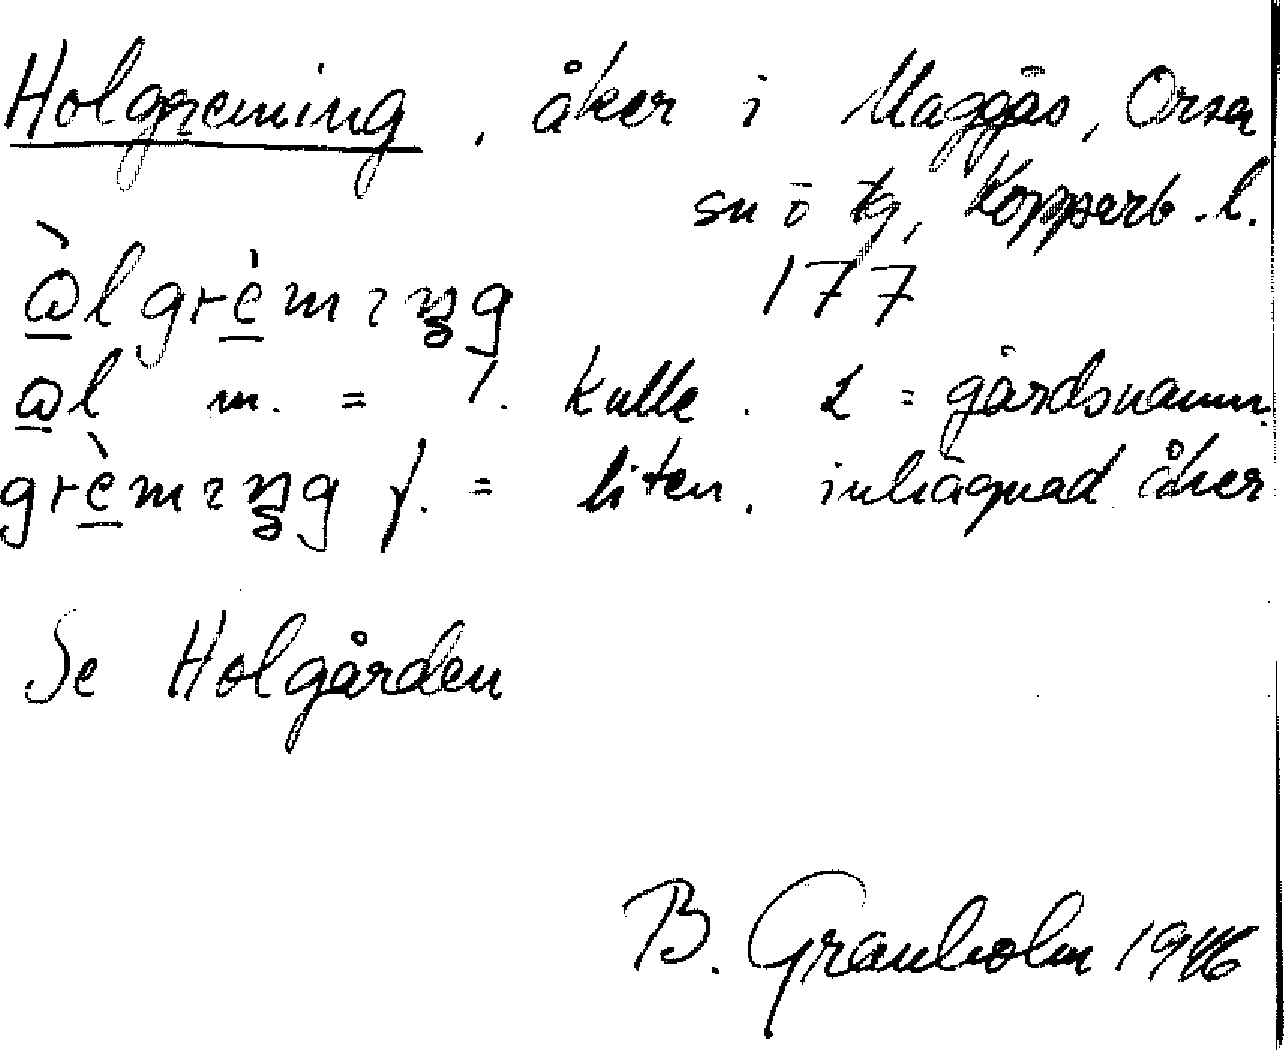 Holgreming, åker i Maggås, Orsa
sn o tg, Kopparb. l.
177
ål m. = 1. kulle. 2 = gårdsnamn.
f. = liten, inhägnad åker
Se Holgården
B. Granholm 1946